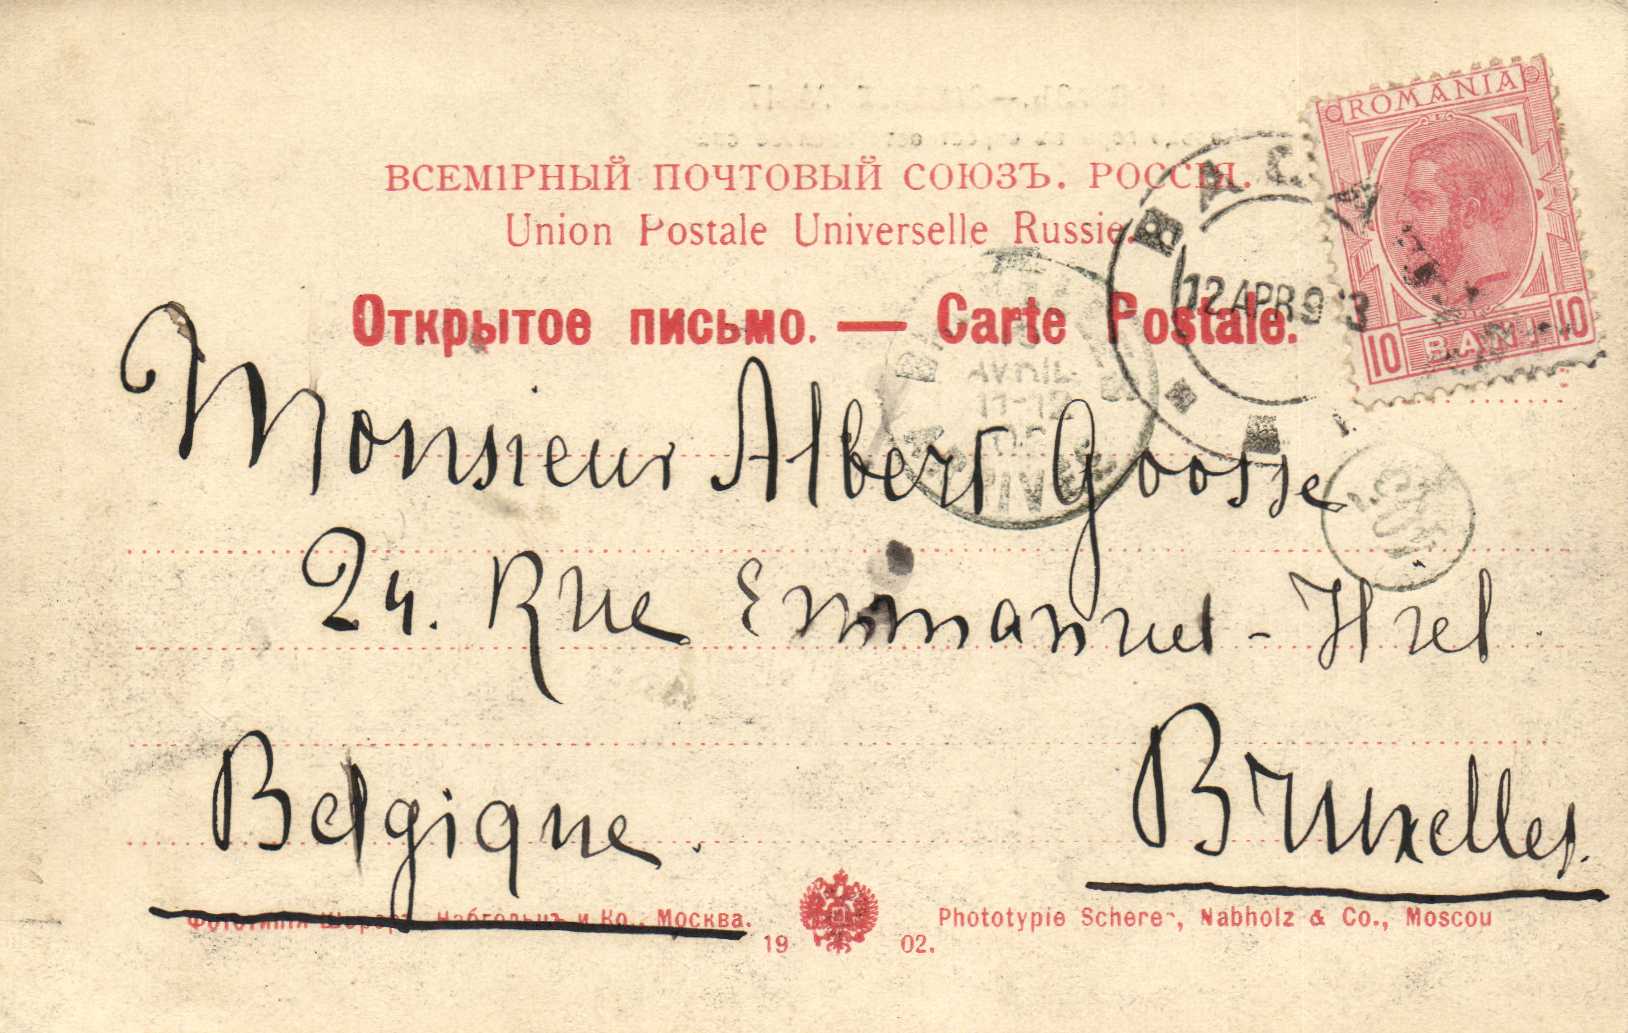 ВСЕМІРНЫЙ ПОЧТОВЫЙ СОЮЗЪ. РОССІЯ.
Union Postale Universelle Russie.
Открытое письмо. — Carte Postale.
ROMANIA
10 BANI 10
12 APR 93
AVRIL
11-12
Monsieur Albert Goosse
24. Rue Emmanuel-Hiel.
Belgique.
Bruxelles.
Фототипія Шереръ, Набгольцъ и Ко., Москва.
Phototypie Scherer, Nabholz & Co., Moscou
1902.